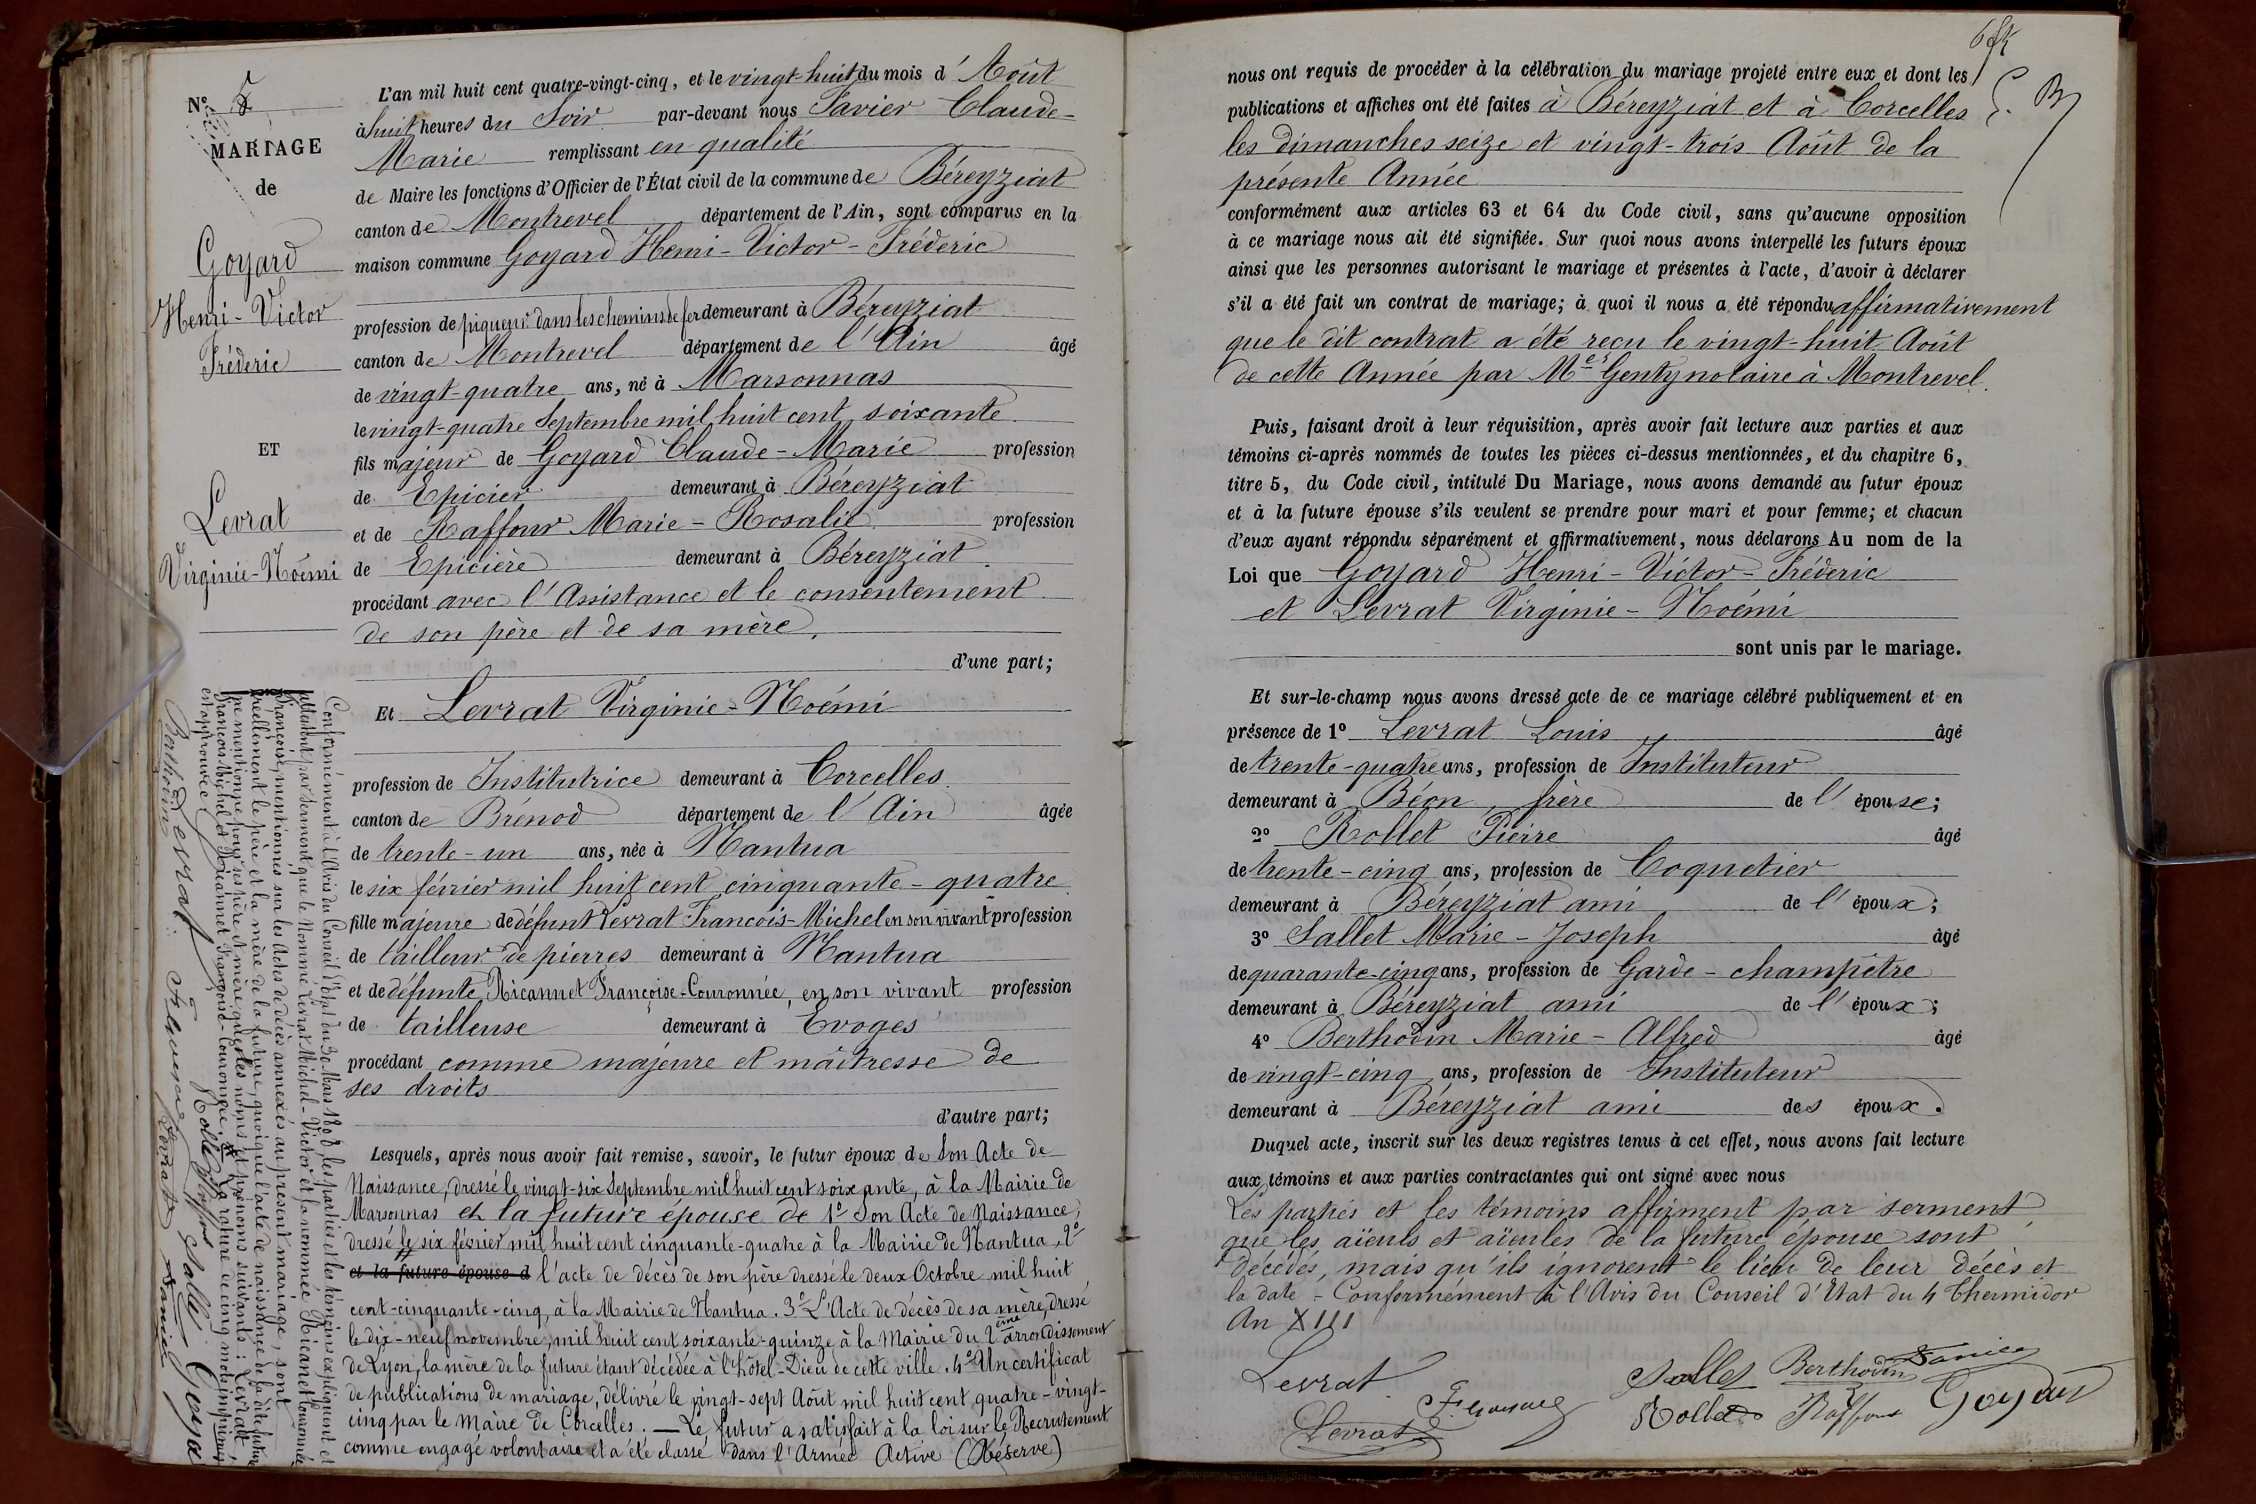 N° 5
MARIAGE
de
Goyard
Henri-Victor
Fréderic
ET
Levrat
Virginie-Noémi
L'an mil huit cent quatre-vingt-cinq, et le vingt-huit du mois d'Août
à huit heures du Soir par-devant nous Favier Claude-
Marie remplissant en qualité
de Maire les fonctions d'Officier de l'État civil de la commune de Béreyziat
canton de Montrevel département de l'Ain, sont comparus en la
maison commune Goyard Henri-Victor-Fréderic
profession de piqueur dans les chemins de fer demeurant à Béreyziat
canton de Montrevel département de l'Ain âgé
de vingt-quatre ans, né à Marsonnas
le vingt-quatre Septembre mil huit cent soixante
fils majeur de Goyard Claude-Marie profession
de Epicier demeurant à Béreyziat
et de Raffour Marie-Rosalie profession
de Epicière demeurant à Béreyziat.
procédant avec l'Assistance et le consentement
de son père et de sa mère.
d'une part;
Et Levrat Virginie-Noémi
profession de Institutrice demeurant à Corcelles
canton de Brénod département de l'Ain âgée
de trente-un ans, née à Nantua
le six février mil huit cent cinquante-quatre
fille majeure de défunt Levrat François-Michel en son vivant profession
de tailleur de pierres demeurant à Nantua
et de défunte Ricannet Françoise-Couronnée, en son vivant profession
de tailleuse demeurant à Evoges
procédant comme majeure et maîtresse de
ses droits
d'autre part;
Lesquels, après nous avoir fait remise, savoir, le futur époux de Son Acte de
Naissance, dressé le vingt-six Septembre mil huit cent soixante, à la Mairie de
Marsonnas et la future épouse de 1° Son Acte de Naissance,
dressé le six février mil huit cent cinquante-quatre à la Mairie de Nantua, 2°
et la future épouse d l'acte de décès de son père dressé le deux Octobre mil huit
cent-cinquante-cinq, à la Mairie de Nantua. 3° L'Acte de décès de sa mère, dressé
le dix-neuf novembre, mil huit cent soixante-quinze à la Mairie du 2ème arrondissement
de Lyon, la mère de la future étant décédée à l'hôtel-Dieu de cette ville. 4° Un certificat
de publications de mariage, délivré le vingt-sept Août mil huit cent quatre-vingt-
cinq par le Maire de Corcelles. — Le futur a satisfait à la loi sur le Recrutement
comme engagé volontaire et a été classé dans l'Armée Active (Réserve)
Conformément à l'Avis du Conseil d'Etat du 30 Mars 1808, les parties et les témoins expliquent et
attestent par serment que le Nommé Levrat Michel-Victor et la nommée Ricanet Couronnée
Françoise, mentionnés sur les Actes de décès annexés au présent mariage, sont
réellement le père et la mère de la future, quoique l'acte de naissance de la dite future
ne mentionne pour ses père et mère que les noms et prénoms suivants: Levrat,
François-Michel et Ricannet Françoise-Couronnée. La rature de cinq mots imprimés
est approuvée
Levrat
Berthodin
Rollet
Raffour
Sallet
Goyard
Levrat
Favier
nous ont requis de procéder à la célébration du mariage projeté entre eux et dont les
publications et affiches ont été faites à Béreyziat et à Corcelles
les dimanches seize et vingt-trois Août de la
présente Année
conformément aux articles 63 et 64 du Code civil, sans qu'aucune opposition
à ce mariage nous ait été signifiée. Sur quoi nous avons interpellé les futurs époux
ainsi que les personnes autorisant le mariage et présentes à l'acte, d'avoir à déclarer
s'il a été fait un contrat de mariage; à quoi il nous a été répondu affirmativement
que le dit contrat a été reçu le vingt-huit Août
de cette Année par Me Genty notaire à Montrevel.
Puis, faisant droit à leur réquisition, après avoir fait lecture aux parties et aux
témoins ci-après nommés de toutes les pièces ci-dessus mentionnées, et du chapitre 6,
titre 5, du Code civil, intitulé Du Mariage, nous avons demandé au futur époux
et à la future épouse s'ils veulent se prendre pour mari et pour femme; et chacun
d'eux ayant répondu séparément et affirmativement, nous déclarons Au nom de la
Loi que Goyard Henri-Victor-Fréderic
et Levrat Virginie-Noémi
sont unis par le mariage.
Et sur-le-champ nous avons dressé acte de ce mariage célébré publiquement et en
présence de 1° Levrat Louis âgé
de trente-quatre ans, profession de Instituteur
demeurant à Béon, frère de l'épouse;
2° Rollet Pierre âgé
de trente-cinq ans, profession de Coquetier
demeurant à Béreyziat ami de l'époux;
3° Sallet Marie-Joseph âgé
de quarante-cinq ans, profession de Garde-champêtre
demeurant à Béreyziat ami de l'époux;
4° Berthodin Marie-Alfred âgé
de vingt-cinq ans, profession de Instituteur
demeurant à Béreyziat ami des époux.
Duquel acte, inscrit sur les deux registres tenus à cet effet, nous avons fait lecture
aux témoins et aux parties contractantes qui ont signé avec nous
Les parties et les témoins affirment par serment
que les aïeuls et aïeules de la future épouse sont
décédés, mais qu'ils ignorent le lieu de leur décès et
la date - Conformément à l'Avis du Conseil d'Etat du 4 Thermidor
An XIII
Levrat
Sallet
Berthodin
Favier
Rollet
Raffour
Goyard
Levrat